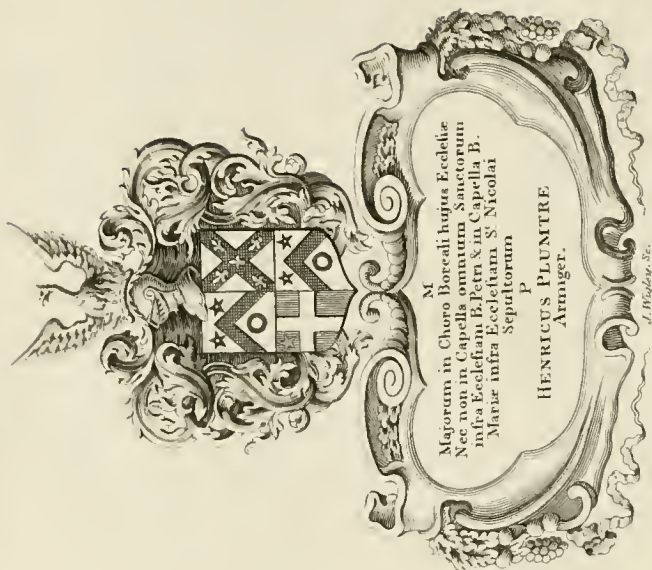 M
Majorum in Choro Boreali hujus Ecclesiæ
Nec non in Capella omnium Sanctorum
infra Ecclesiam B. Petri & in Capella B.
Mariæ infra Ecclesiam S.ᵗ Nicolai
Sepultorum
P
HENRICUS PLUMTRE
Armiger.
J. Wigley. Sc.